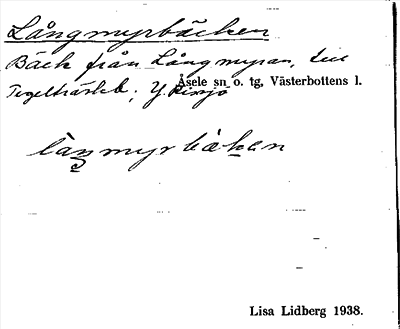 Långmyrbäcken
Bäck från Långmyran, till
Åsele sn o. tg, Västerbottens l.
Tegelträsket, Y.
Lisa Lidberg 1938.